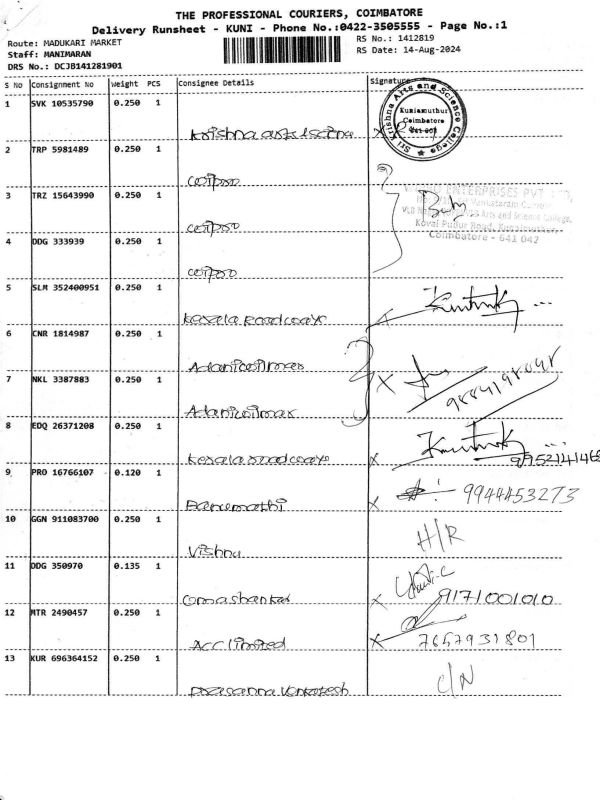 THE PROFESSIONAL COURIERS, COIMBATORE
Delivery Runsheet - KUNI - Phone No.:0422-3505555 - Page No.:1
Route: MADUKARI MARKET
RS No.: 1412819
Staff: MANIMARAN
RS Date: 14-Aug-2024
DRS No.: DCJB141281901
S No Consignment No Weight PCS Consignee Details Signature
1 SVK 10535790 0.250 1
Sri Krishna Arts and Science College
Kuniamuthur
Coimbatore
641 008
2 TRP 5981489 0.250 1
3 TRZ 15643990 0.250 1
ENTERPRISES PVT
Arts and Science College,
Kovai Pudur Road,
Coimbatore - 641 042
4 DDG 333939 0.250 1
5 SLM 352400951 0.250 1
Kerala Roadways
6 CNR 1814987 0.250 1
Adaniwilmar
7 NKL 3387883 0.250 1
Adaniwilmar
8 EDQ 26371208 0.250 1
Kerala roadways
9 PRO 16766107 0.120 1
Banumathi 9944453273
10 GGN 911083700 0.250 1
Vishnu H/R
11 DDG 350970 0.135 1
Omashankar 9171001010
12 MTR 2490457 0.250 1
ACC limited 7657931801
13 KUR 696364152 0.250 1
Prasanna Venkatesh C/N